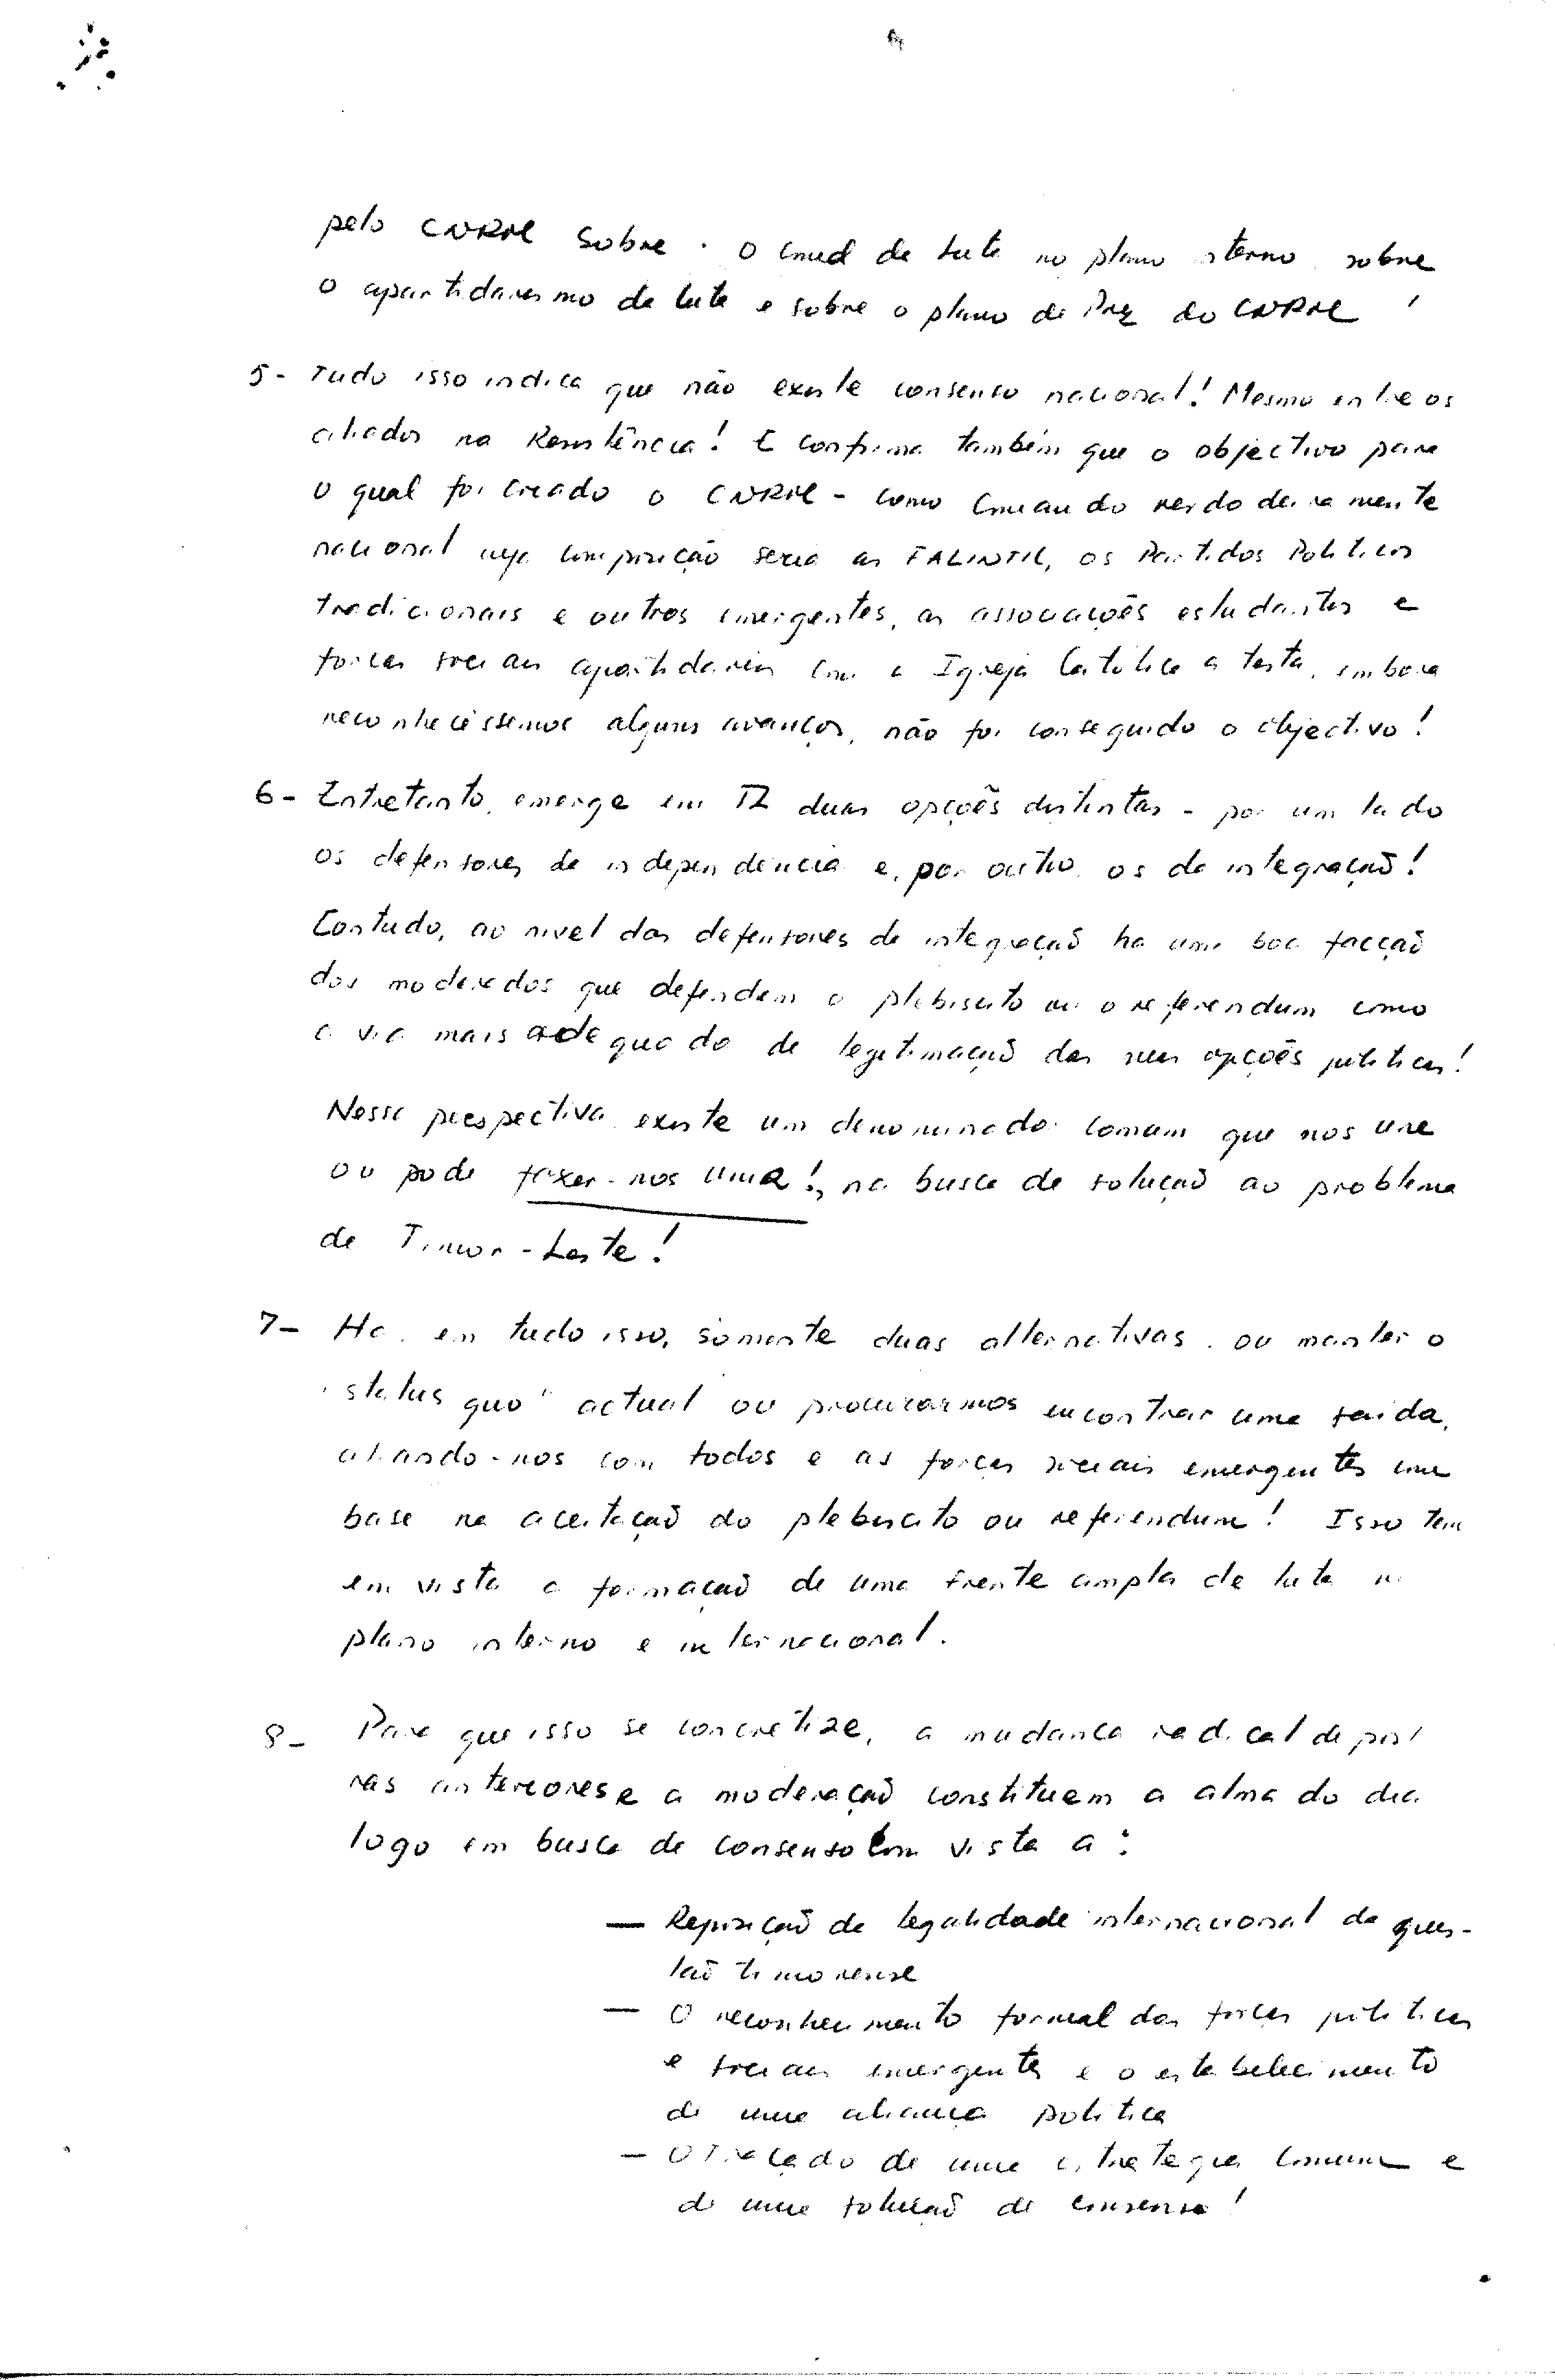 pelo CNRM sobre o Cmd da luta no plano interno, sobre
o apartidarismo da luta e sobre o plano de Paz do CNRM!
5- Tudo isso indica que não existe consenso nacional! Mesmo entre os
aliados na Resistência! E confirma também que o objectivo para
o qual foi creado o CNRM - como Comando verdadeiramente
nacional cuja composição seria as FALINTIL, os Partidos Politicos
tradicionais e outros emergentes, as associações estudantis e
forças sociais apartidarias com a Igreja Católica a testa, embora
reconhecessemos alguns avanços, não foi conseguido o objectivo!
6- Entretanto, emerge em TL duas opções distintas - por um lado
os defensores da independencia e, por outro, os da integração!
Contudo, ao nivel dos defensores da integração ha uma boa facção
dos moderados que defendem o plebiscito ou o referendum como
a via mais adequada de legitimação das suas opções politicas!
Nessa perspectiva existe um denominador comum que nos une
ou pode fazer-nos unir!, na busca de solução ao problema
de Timor-Leste!
7- Ha, em tudo isso, somente duas alternativas: ou manter o
"status quo" actual ou procurarmos encontrar uma saida,
aliando-nos com todos e as forças sociais emergentes com
base na aceitação do plebiscito ou referendum! Isso tem
em vista a formação de uma frente ampla de luta no
plano interno e internacional.
8- Para que isso se concretize, a mudança radical de postu
ras anteriores e a moderação constituem a alma do dia
logo em busca de consenso com vista a:
— Reposição da legalidade internacional da ques-
tão timorense
— O reconhecimento formal das forças politicas
e sociais emergentes e o estabelecimento
de uma aliança politica
— O traçado de uma estrategia comum e
de uma solução de consenso!